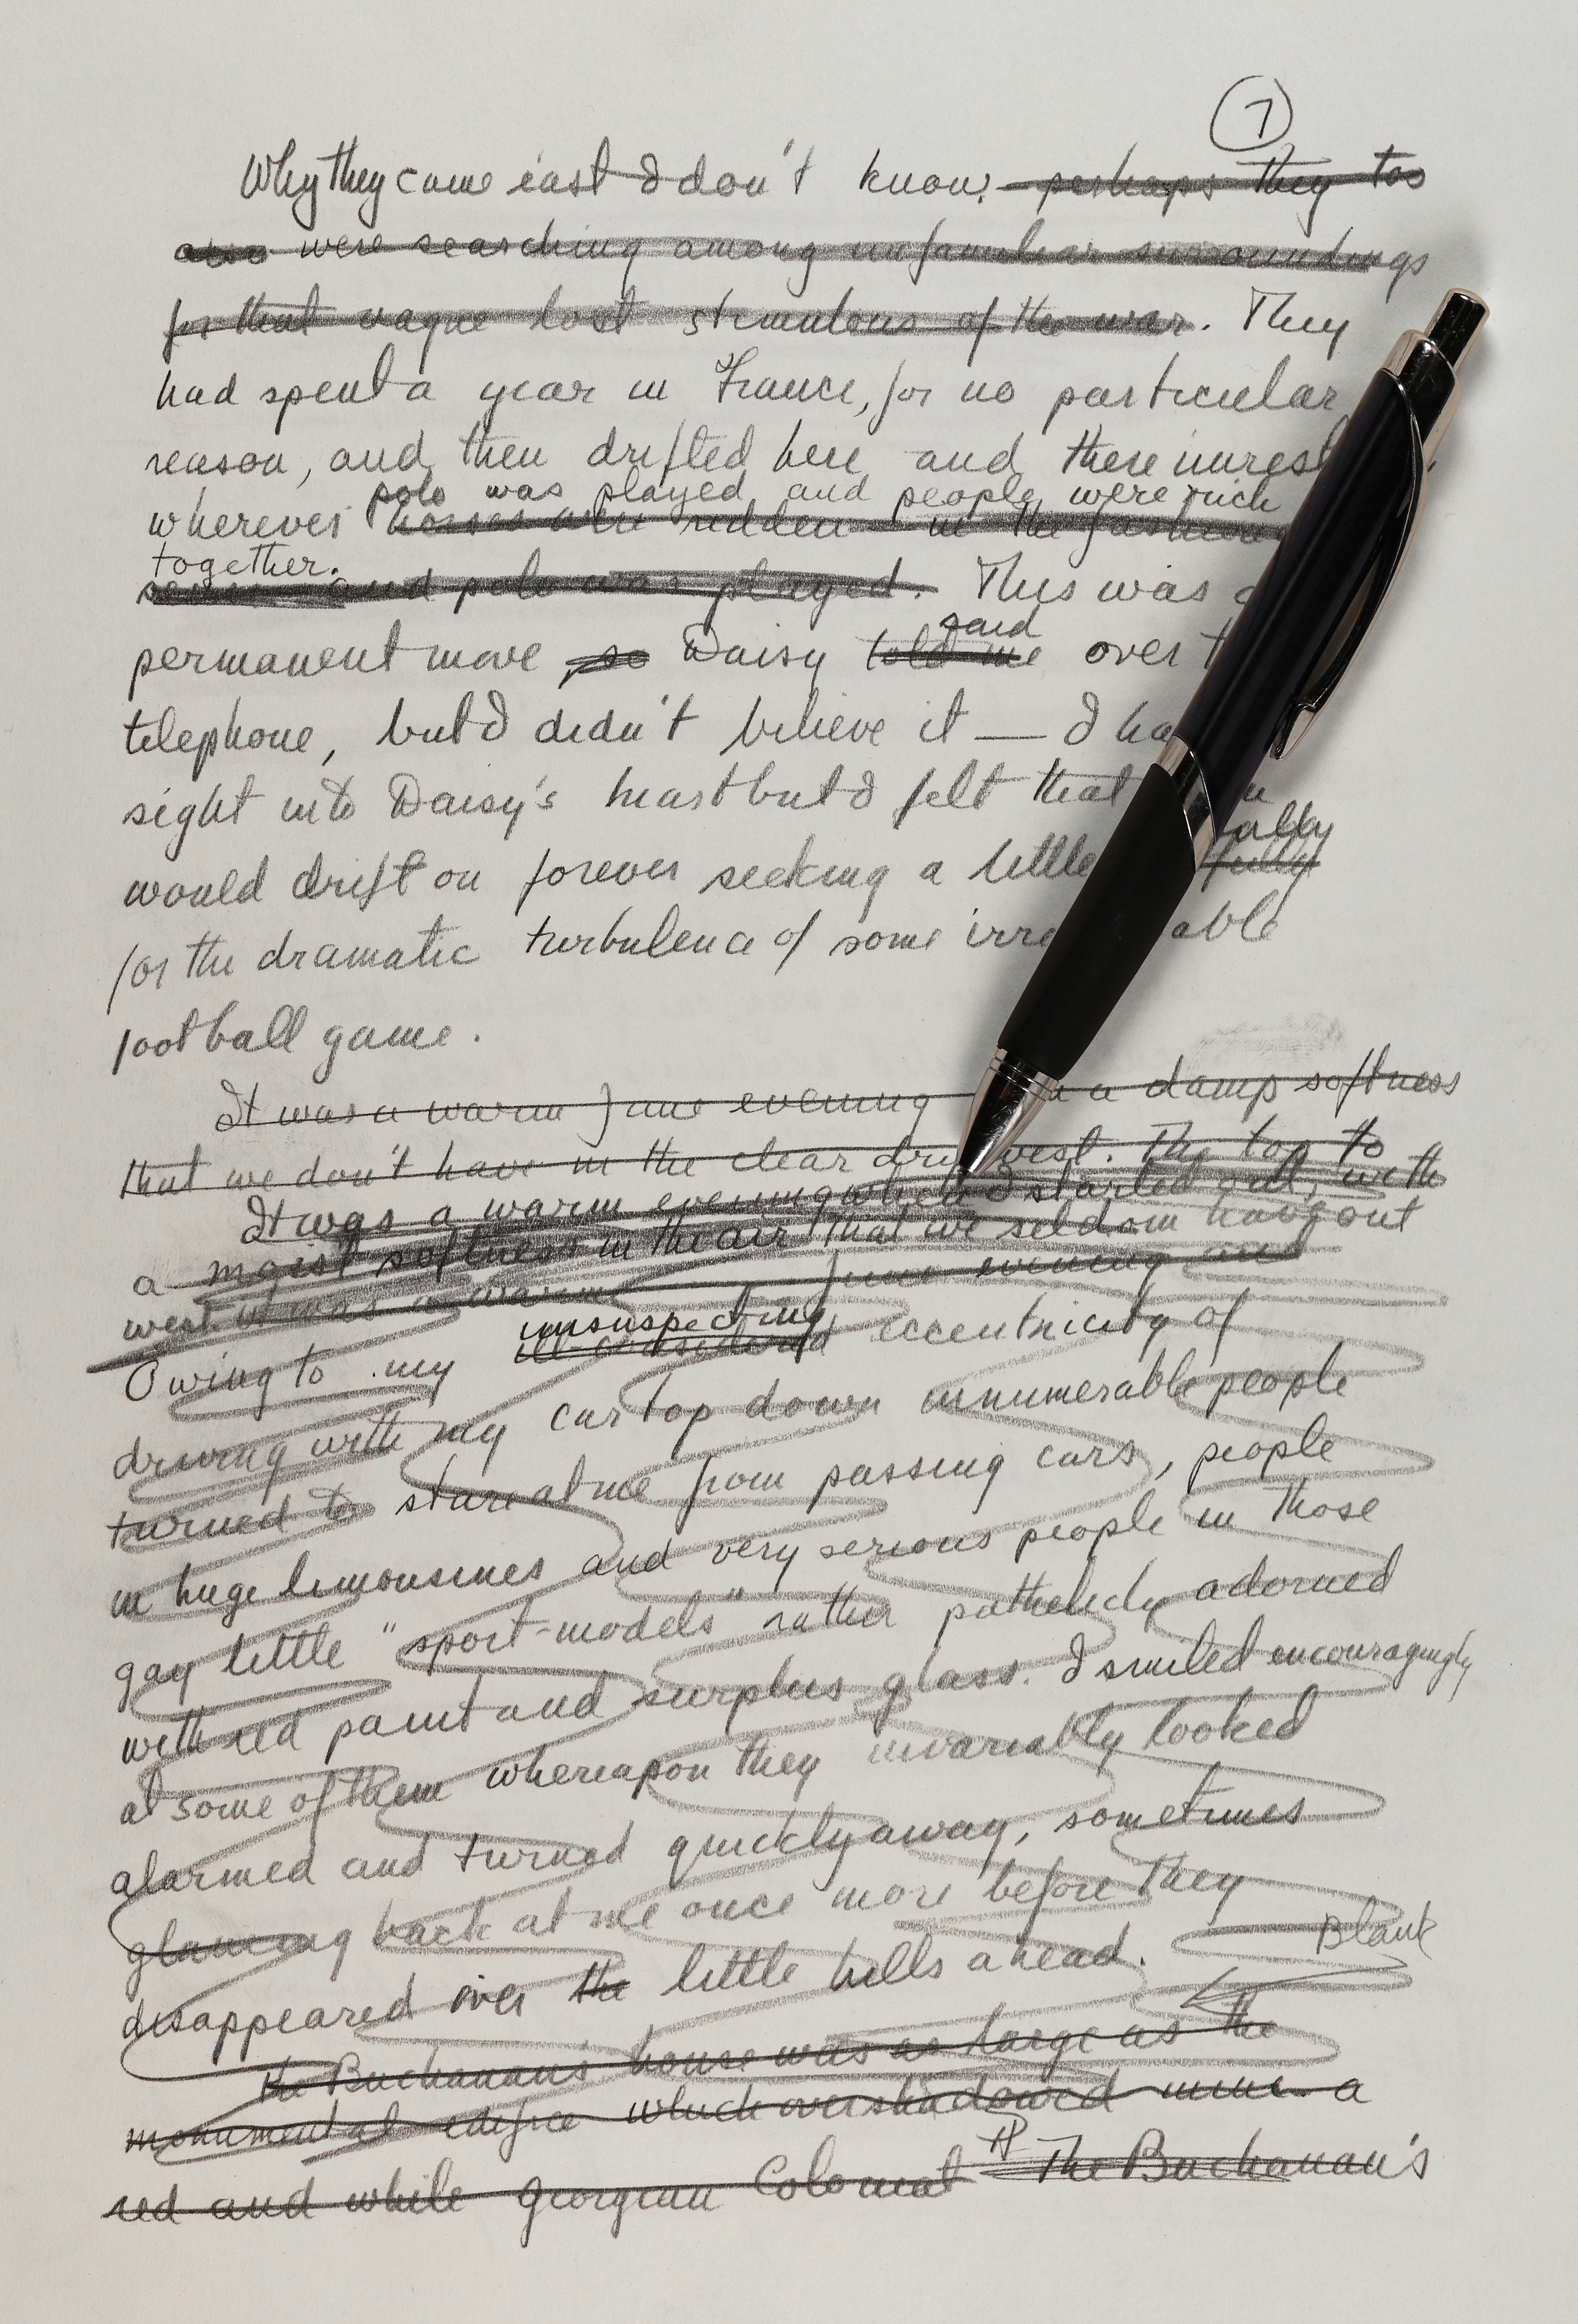 7
Why they came east I don't know. perhaps they too
also were searching among unfamiliar surroundings
for that vague lost stimulous of the war. They
had spent a year in France, for no particular
reason, and then drifted here and there unrest
polo was played and people were rich
wherever horses were ridden in the fashion
together.
and polo was played. This was a
said
permanent move, so Daisy told me over t
telephone, but I didn't believe it — I ha
sight into Daisy's heart but I felt that
ally
would drift on forever seeking a little fully
for the dramatic turbulence of some irre able
football game.
It was a warm June evening a damp softness
that we don't have in the clear dry west. The top to
It was a warm evening when I started out, with
a moist softness in the air that we seldom have out
west it was a warm June evening and
unsuspecting
Owing to my ill-considered eccentricity of
driving with my car top down innumerable people
turned to stare at me from passing cars, people
in huge limousines and very serious people in those
gay little "sport-models" rather pathetically adorned
with red paint and surplus glass. I smiled encouragingly
at some of them whereupon they invariably looked
alarmed and turned quickly away, sometimes
glancing back at me once more before they
Blank
disappeared over the little hills ahead.
The Buchanans' house was as large as the
monumental edifice which overshadowed mine - a
H
red and white Georgian Colonial The Buchanan's